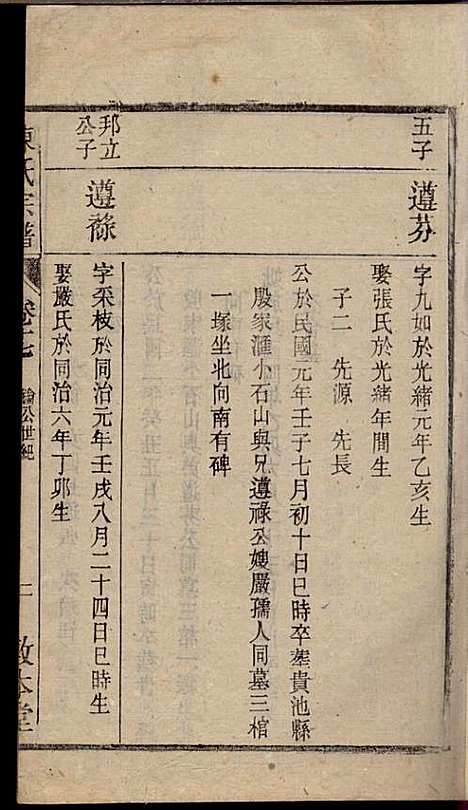 五子
遵芬
字九如於光緒元年乙亥生
娶張氏於光緒年間生
子二　先源　先長
公於民國元年壬子七月初十日巳時卒葬貴池縣
殷家滙小石山與兄遵祿公嫂嚴孺人同墓三棺
一塚坐北向南有碑
邦立
公子
遵祿
字采枝於同治元年壬戌八月二十四日巳時生
娶嚴氏於同治六年丁卯生
陳氏宗譜
卷十七
公世紀
敦本堂